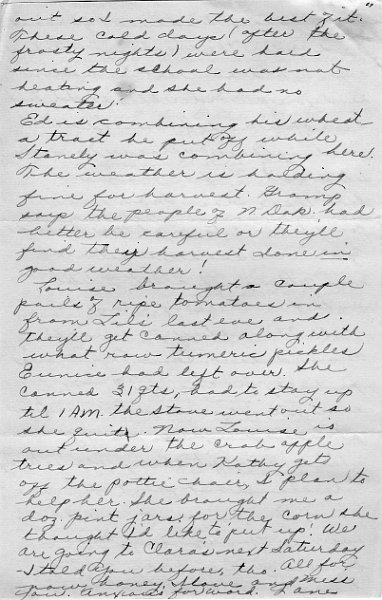 out so I made the best of it.
These cold days (after the
frosty nights) were hard
since the school was not
heating and she had no
sweater.
Ed is combining his wheat
a tract he put off while
Stanely was combining here.
The weather is holding
fine for harvest. Gramp
says the people of N Dak. had
better be careful or they'll
find they harvest done in
good weather!
Louise brought a couple
pails of ripe tomatoes in
from Lib's last eve and
they'll get canned along with
what raw tumeric pickles
Eunice had left over. She
canned 31 qts, had to stay up
til 1 AM. the stove went out so
she quit. Now Louise is
out under the crab apple
tries and when Kathy gets
off the pottie chair, I plan to
help her. She brought me a
doz pint jars for the corn she
thought I'd like to put up! We
are going to Claras next Saturday
I told you before, tho. All for
now honey, I love and miss
you. Anxious for word. Jane